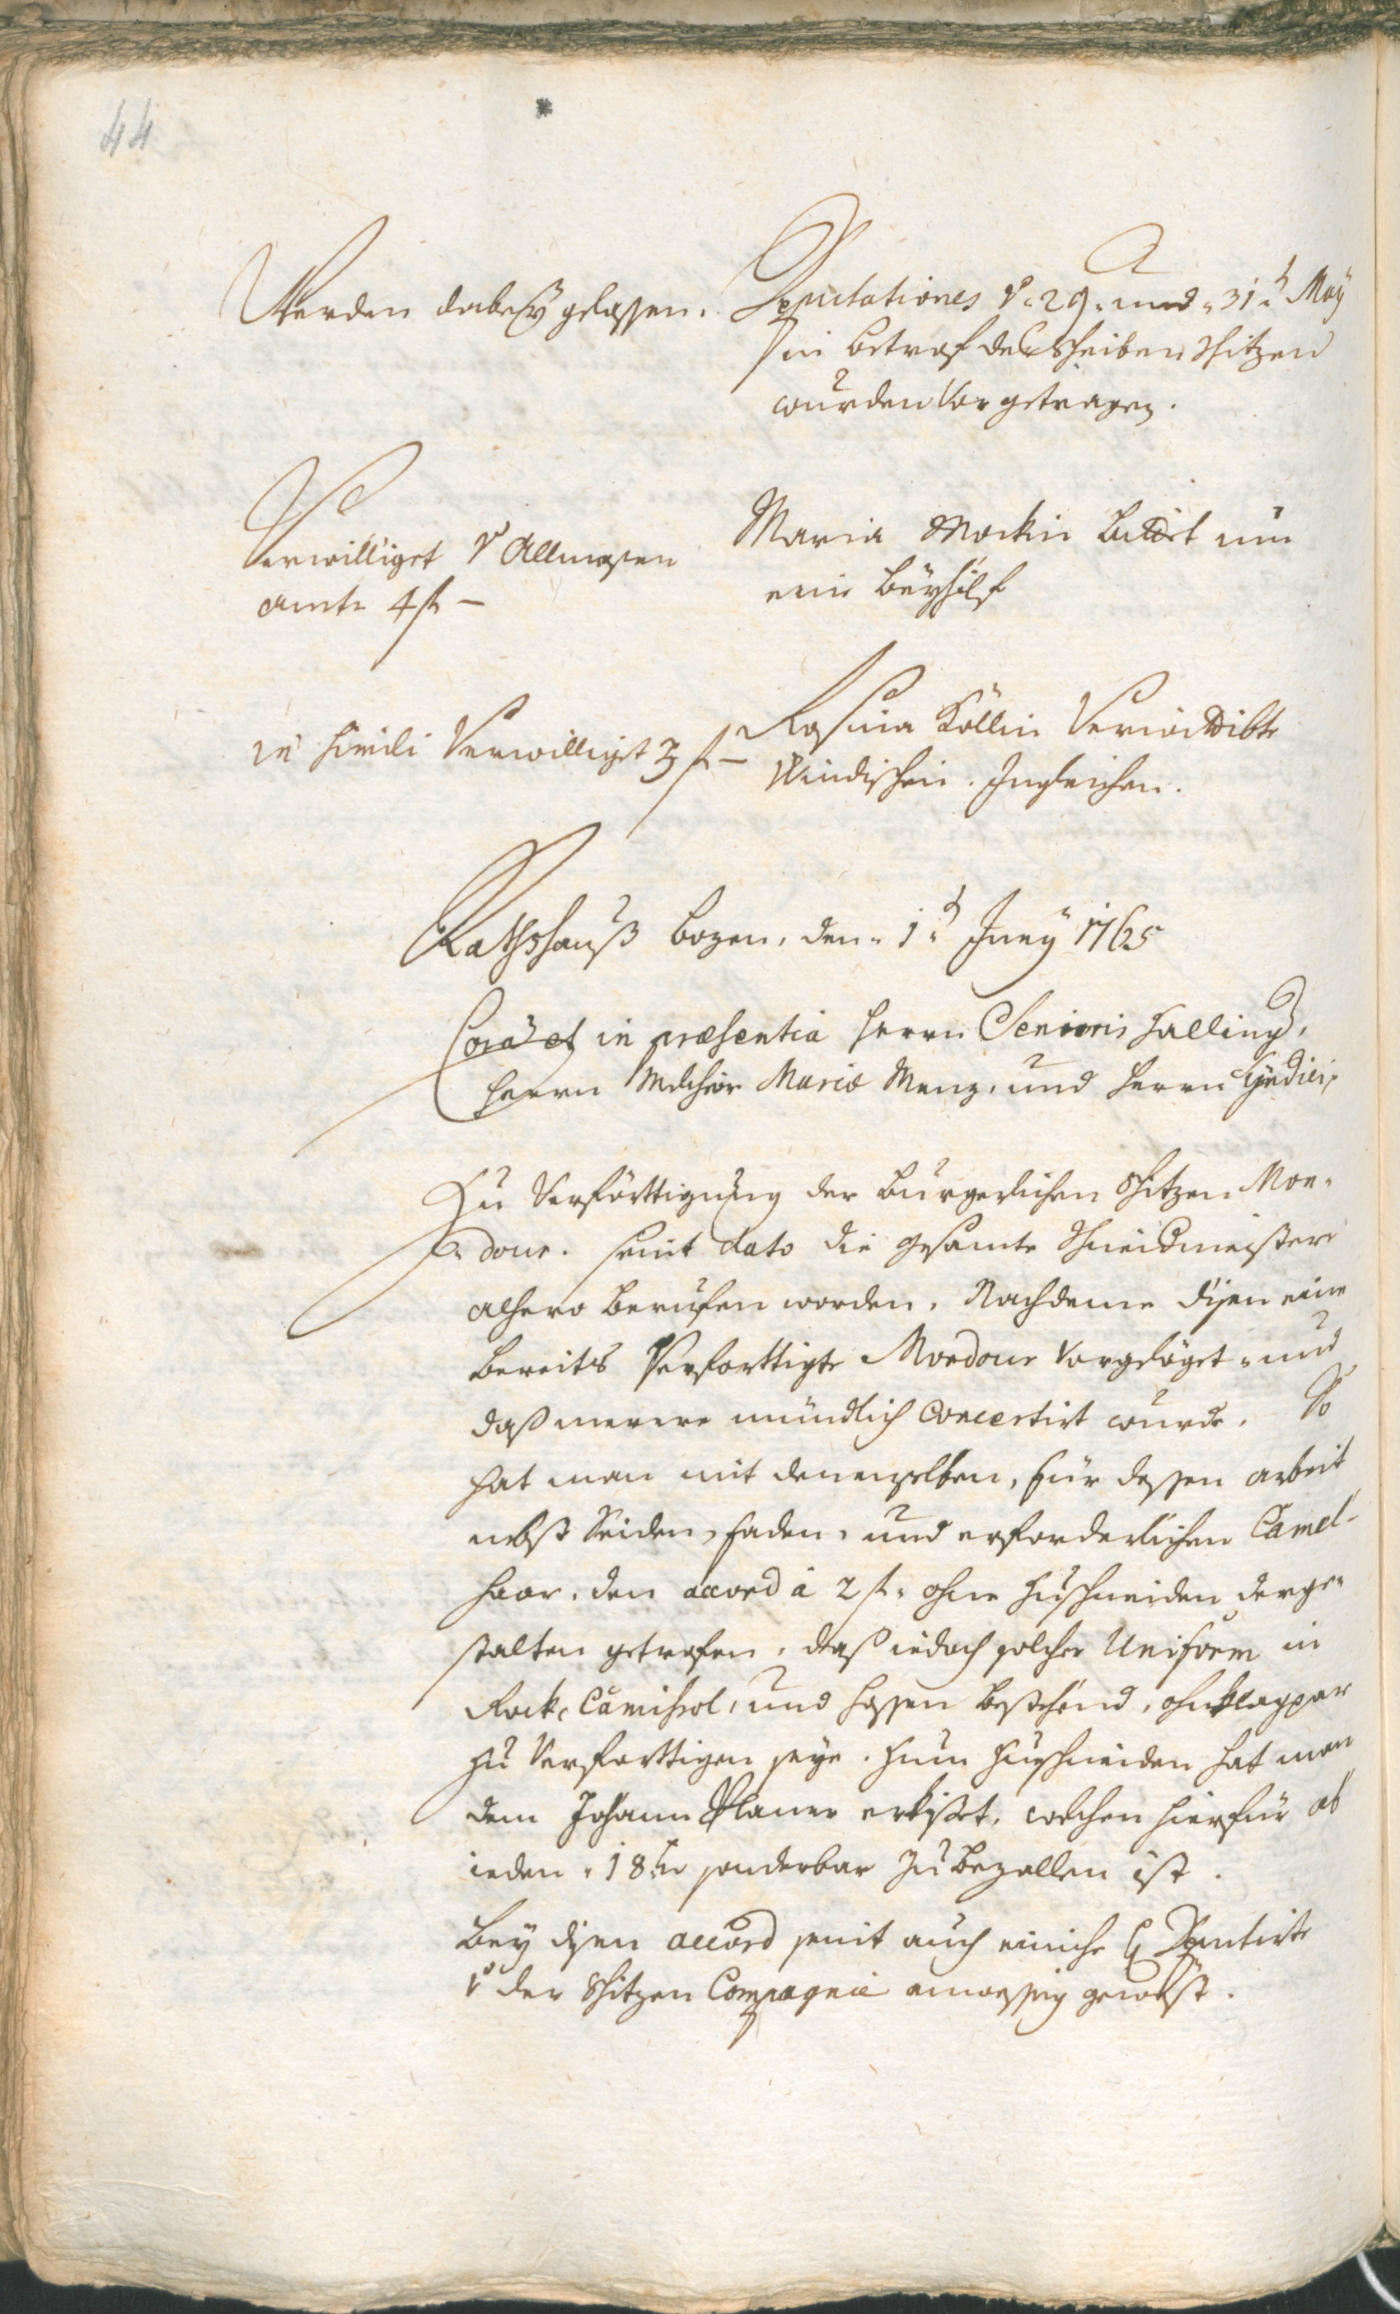 44
Werden dabeÿ gelassen.
Deputationes v. 29. und 31t. Maÿ
in betraf der scheiben schitzen
wurden Vorgetragen.
Verwilliget v Allmosen
amts 4 fl –
Maria Mockin bittet um
eine beÿhilf
in simili Verwilliget 3 fl –
Rosina Köllin Verwittibte
Windischin. Ingleichen.
Rathshauß Bozen, den 1t. Junÿ 1765
Corã et in præsentia herrn Senioris Hallings,
herrn Melchior Maria Menz, und herrn Sÿndici,
Zu Verförttigung der burgerlichen schitzen Mon-
dour. seint dato die gesamte schneidmeistere
alhero beruefen worden. Nachdeme disen eine
bereits Verforttigte Mondour Vorgelöget und
daß merere mündlich Concertirt wurde. So
hat man mit denenselben, für dessen arbeit
nebst seiden, faden, und erforderlichen Camel-
haar, den accord à 2 fl. ohne zuschneiden derge-
stalten getrofen, daß iedoch solche Uniform in
Rock, Camisol, und hossen bestehend, ohnklagpar
zu Verforttigen seye. zum zueschneiden hat man
dem Johann Planer erkisst, welchen hierfür ab
ieden 18 kr sonderbar zu bezallen ist.
Beÿ disen accord seint auch einiche Deputirte
v der schitzen Compagnie anwessig gewest.